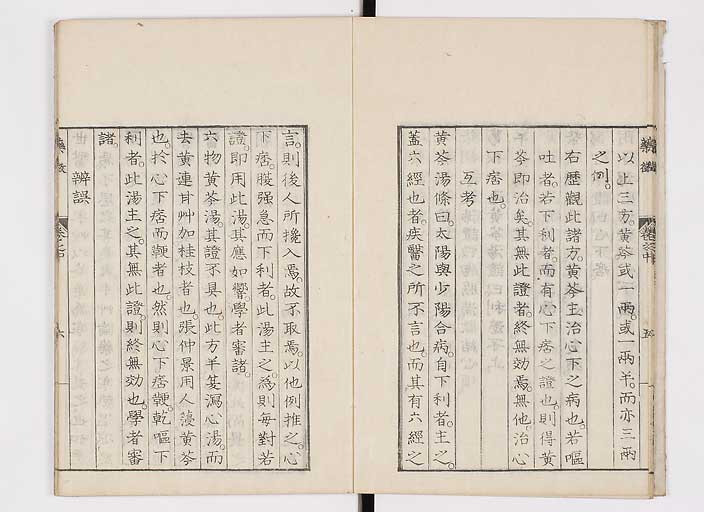 以上三方。黃芩或一兩。或一兩半。而亦三兩
之例。
右歷觀此諸方。黃芩主治心下之病也。若嘔
吐者。若下利者。而有心下痞之證也。則得黃
芩即治矣。其無此證者。終無効焉。無他治心
下痞也。
互考
黃芩湯條曰。太陽與少陽合病。自下利者。主之。
蓋六經也者。疾醫之所不言也。而其有六經之
言。則後人所攙入焉。故不取焉。以他例推之。心
下痞。腹强急而下利者。此湯主之。爲則每對若
證。即用此湯。其應如響。學者審諸。
六物黃芩湯。其證不具也。此方半夏瀉心湯。而
去黃連甘艸加桂枝者也。張仲景用人薓黃芩
也。於心下痞而鞕者也。然則心下痞鞕。乾嘔下
利者。此湯主之。其無此證。則終無効也。學者審
諸。
辨誤